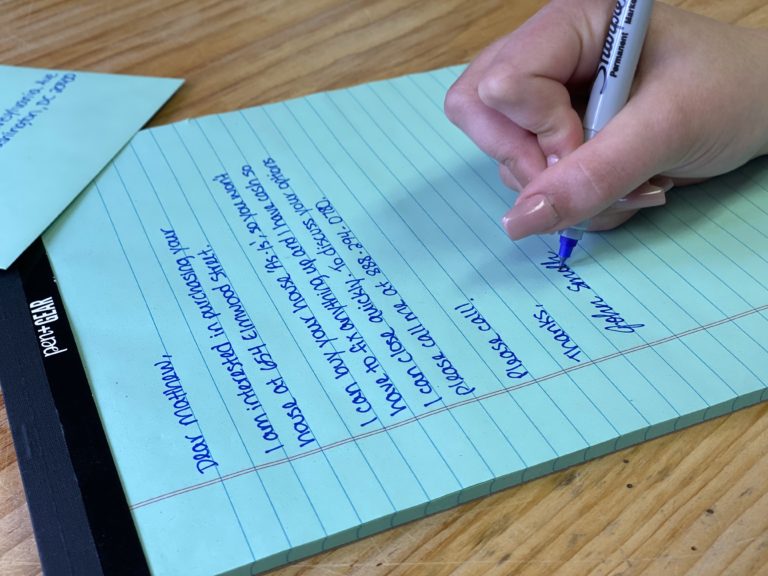 Dear Matthew,
I am interested in purchasing your
house at 654 Elmwood Street.
I can buy your house 'As is', so you won't
have to fix anything up and I have cash so
I can close quickly. To discuss your options
please call me at 888-294-0780.
Please call!
Thanks,
John Small
Sharpie
Permanent Marker
pen+GEAR
Ave
DC